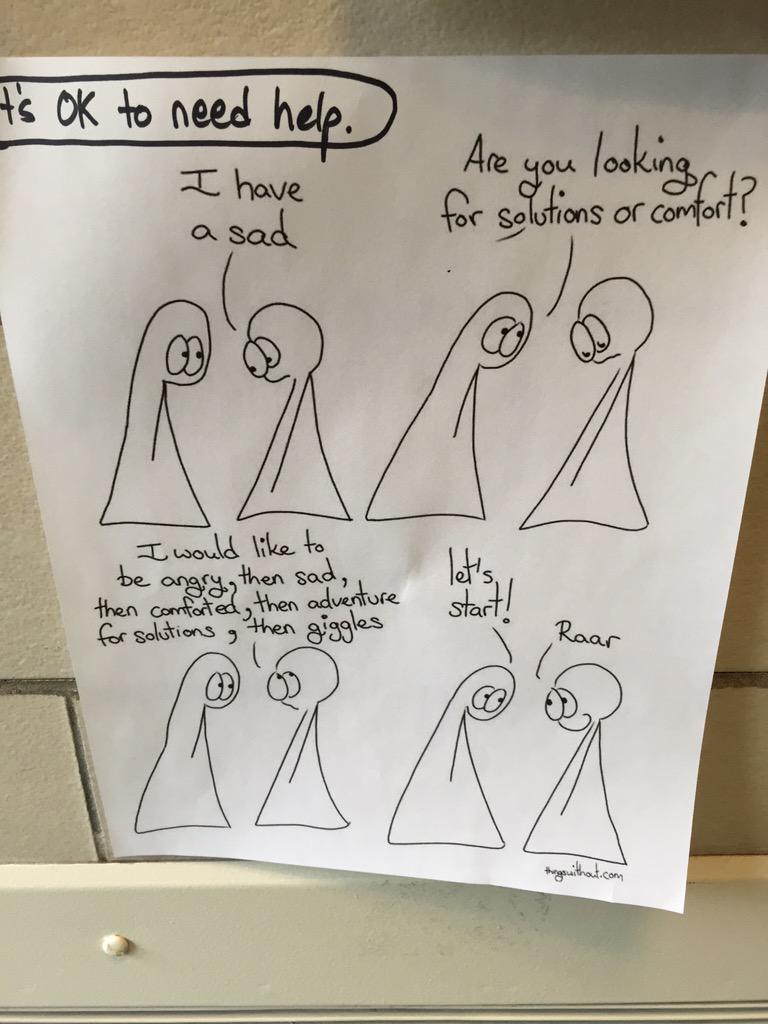 t's OK to need help.
I have
a sad
Are you looking
for solutions or comfort?
I would like to
be angry, then sad,
then comforted, then adventure
for solutions, then giggles
let's
start!
Raar
thingswithout.com